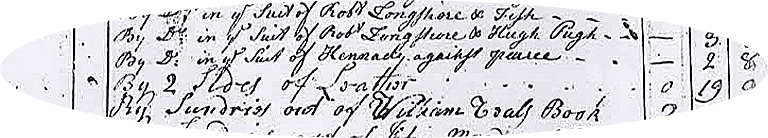 By Do in ye Suit of Robt Longshore & Fish - -
By Do in ye Suit of Robt Longshore & Hugh Pugh - - 3
By Do in ye Suit of Kennady against - 2 8
By 2 Sides of Leather 19 0
By Sundries out of William Teals Book 0